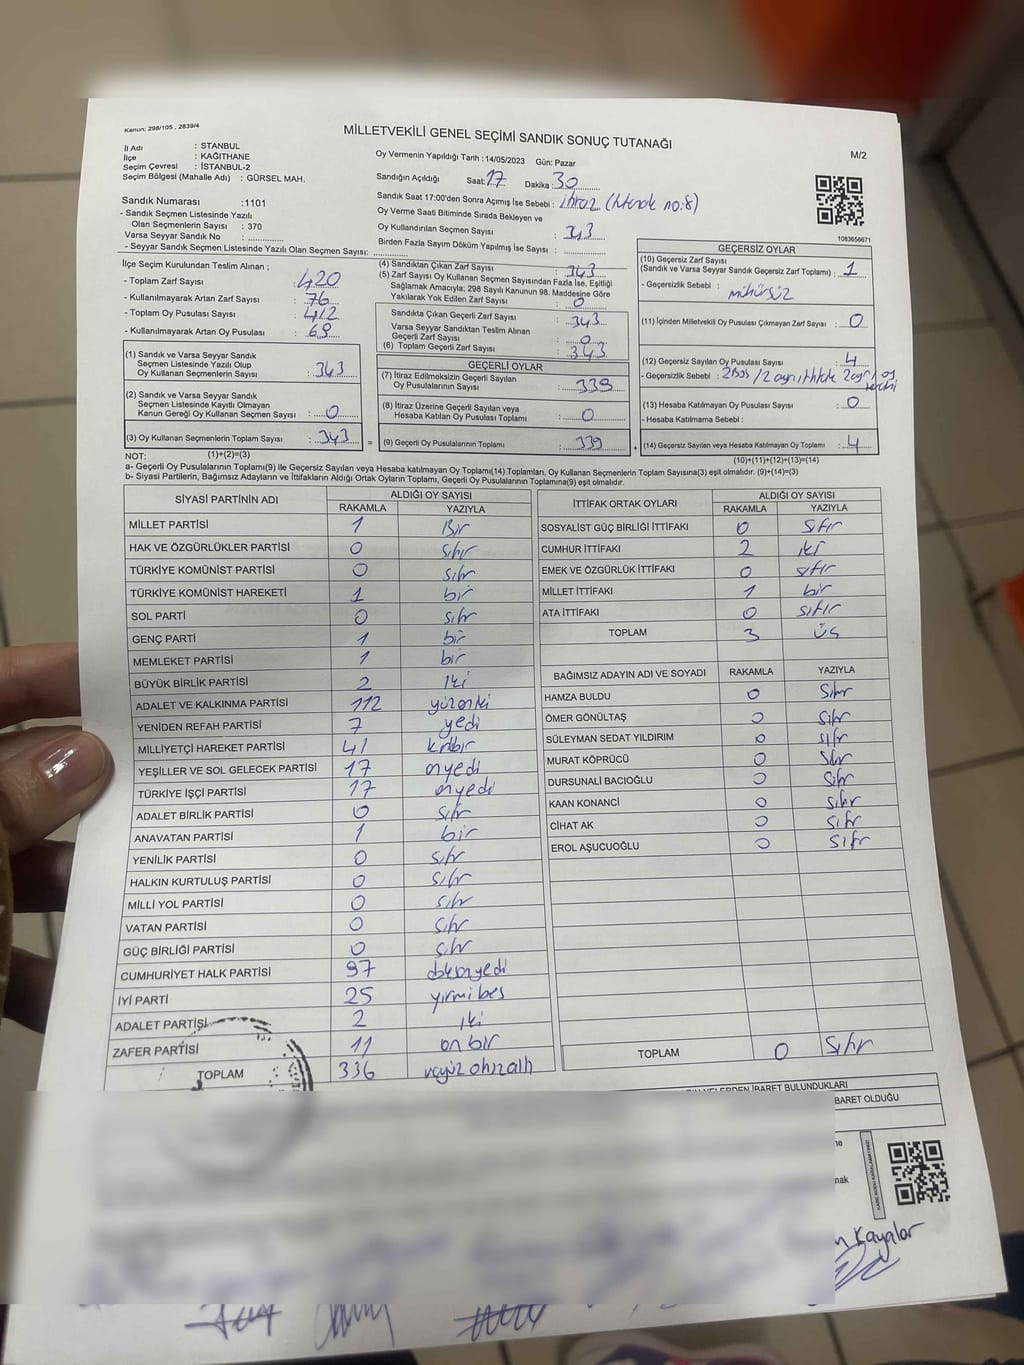 Kanun; 298/105 , 2839/4
MİLLETVEKİLİ GENEL SEÇİMİ SANDIK SONUÇ TUTANAĞI
M/2
İl Adı : İSTANBUL
İlçe : KAĞITHANE
Seçim Çevresi : İSTANBUL-2
Seçim Bölgesi (Mahalle Adı) : GÜRSEL MAH.
Oy Vermenin Yapıldığı Tarih : 14/05/2023 Gün: Pazar
Sandığın Açıldığı Saat: 17 Dakika : 30
Sandık Saat 17:00'den Sonra Açımış İse Sebebi : itiraz (tutanak no:8)
Oy Verme Saati Bitiminde Sırada Bekleyen ve
Oy Kullandırılan Seçmen Sayısı : 343
Birden Fazla Sayım Döküm Yapılmış İse Sayısı :
1083656671
Sandık Numarası :1101
- Sandık Seçmen Listesinde Yazılı
Olan Seçmenlerin Sayısı : 370
Varsa Seyyar Sandık No :
- Seyyar Sandık Seçmen Listesinde Yazılı Olan Seçmen Sayısı:
İlçe Seçim Kurulundan Teslim Alınan ;
- Toplam Zarf Sayısı : 420
- Kullanılmayarak Artan Zarf Sayısı : 76
- Toplam Oy Pusulası Sayısı : 412
- Kullanılmayarak Artan Oy Pusulası : 69
(1) Sandık ve Varsa Seyyar Sandık
Seçmen Listesinde Yazılı Olup
Oy Kullanan Seçmenlerin Sayısı : 343
(2) Sandık ve Varsa Seyyar Sandık
Seçmen Listesinde Kayıtlı Olmayan
Kanun Gereği Oy Kullanan Seçmen Sayısı : 0
(3) Oy Kullanan Seçmenlerin Toplam Sayısı : 343 =
(4) Sandıktan Çıkan Zarf Sayısı : 343
(5) Zarf Sayısı Oy Kullanan Seçmen Sayısından Fazla İse, Eşitliği
Sağlamak Amacıyla; 298 Sayılı Kanunun 98. Maddesine Göre
Yakılarak Yok Edilen Zarf Sayısı : 0
Sandıkta Çıkan Geçerli Zarf Sayısı : 343
Varsa Seyyar Sandıktan Teslim Alınan
Geçerli Zarf Sayısı : 0
(6) Toplam Geçerli Zarf Sayısı : 343
GEÇERLİ OYLAR
(7) İtiraz Edilmeksizin Geçerli Sayılan
Oy Pusulalarının Sayısı : 339
(8) İtiraz Üzerine Geçerli Sayılan veya
Hesaba Katılan Oy Pusulası Toplamı : 0
(9) Geçerli Oy Pusulalarının Toplamı : 339 +
GEÇERSİZ OYLAR
(10) Geçersiz Zarf Sayısı
(Sandık ve Varsa Seyyar Sandık Geçersiz Zarf Toplamı) : 1
- Geçersizlik Sebebi : mühürsüz
(11) İçinden Milletvekili Oy Pusulası Çıkmayan Zarf Sayısı : 0
(12) Geçersiz Sayılan Oy Pusulası Sayısı : 4
- Geçersizlik Sebebi : 2Boş / 2 ayrı ittifakta 2 ayrı oy
(13) Hesaba Katılmayan Oy Pusulası Sayısı : 0
- Hesaba Katılmama Sebebi :
(14) Geçersiz Sayılan veya Hesaba Katılmayan Oy Toplamı : 4
NOT: (1)+(2)=(3) (10)+(11)+(12)+(13)=(14)
a- Geçerli Oy Pusulalarının Toplamı(9) ile Geçersiz Sayılan veya Hesaba katılmayan Oy Toplamı(14) Toplamları, Oy Kullanan Seçmenlerin Toplam Sayısına(3) eşit olmalıdır. (9)+(14)=(3)
b- Siyasi Partilerin, Bağımsız Adayların ve İttifakların Aldığı Ortak Oyların Toplamı, Geçerli Oy Pusulalarının Toplamına(9) eşit olmalıdır.
SİYASİ PARTİNİN ADI ALDIĞI OY SAYISI
RAKAMLA YAZIYLA
MİLLET PARTİSİ 1 Bir
HAK VE ÖZGÜRLÜKLER PARTİSİ 0 sıfır
TÜRKİYE KOMÜNİST PARTİSİ 0 sıfır
TÜRKİYE KOMÜNİST HAREKETİ 1 bir
SOL PARTİ 0 sıfır
GENÇ PARTİ 1 bir
MEMLEKET PARTİSİ 1 bir
BÜYÜK BİRLİK PARTİSİ 2 iki
ADALET VE KALKINMA PARTİSİ 112 yüzoniki
YENİDEN REFAH PARTİSİ 7 yedi
MİLLİYETÇİ HAREKET PARTİSİ 41 kırkbir
YEŞİLLER VE SOL GELECEK PARTİSİ 17 onyedi
TÜRKİYE İŞÇİ PARTİSİ 17 onyedi
ADALET BİRLİK PARTİSİ 0 sıfır
ANAVATAN PARTİSİ 1 bir
YENİLİK PARTİSİ 0 sıfır
HALKIN KURTULUŞ PARTİSİ 0 sıfır
MİLLİ YOL PARTİSİ 0 sıfır
VATAN PARTİSİ 0 sıfır
GÜÇ BİRLİĞİ PARTİSİ 0 sıfır
CUMHURİYET HALK PARTİSİ 97 doksanyedi
İYİ PARTİ 25 yirmibeş
ADALET PARTİSİ 2 iki
ZAFER PARTİSİ 11 on bir
TOPLAM 336 üçyüz otuzaltı
İTTİFAK ORTAK OYLARI ALDIĞI OY SAYISI
RAKAMLA YAZIYLA
SOSYALİST GÜÇ BİRLİĞİ İTTİFAKI 0 sıfır
CUMHUR İTTİFAKI 2 iki
EMEK VE ÖZGÜRLÜK İTTİFAKI 0 sıfır
MİLLET İTTİFAKI 1 bir
ATA İTTİFAKI 0 sıfır
TOPLAM 3 üç
BAĞIMSIZ ADAYIN ADI VE SOYADI RAKAMLA YAZIYLA
HAMZA BULDU 0 sıfır
ÖMER GÖNÜLTAŞ 0 sıfır
SÜLEYMAN SEDAT YILDIRIM 0 sıfır
MURAT KÖPRÜCÜ 0 sıfır
DURSUNALİ BACIOĞLU 0 sıfır
KAAN KONANCİ 0 sıfır
CİHAT AK 0 sıfır
EROL AŞUCUOĞLU 0 sıfır
TOPLAM 0 sıfır
İBARET BULUNDUKLARI
BARET OLDUĞU
Kayalar